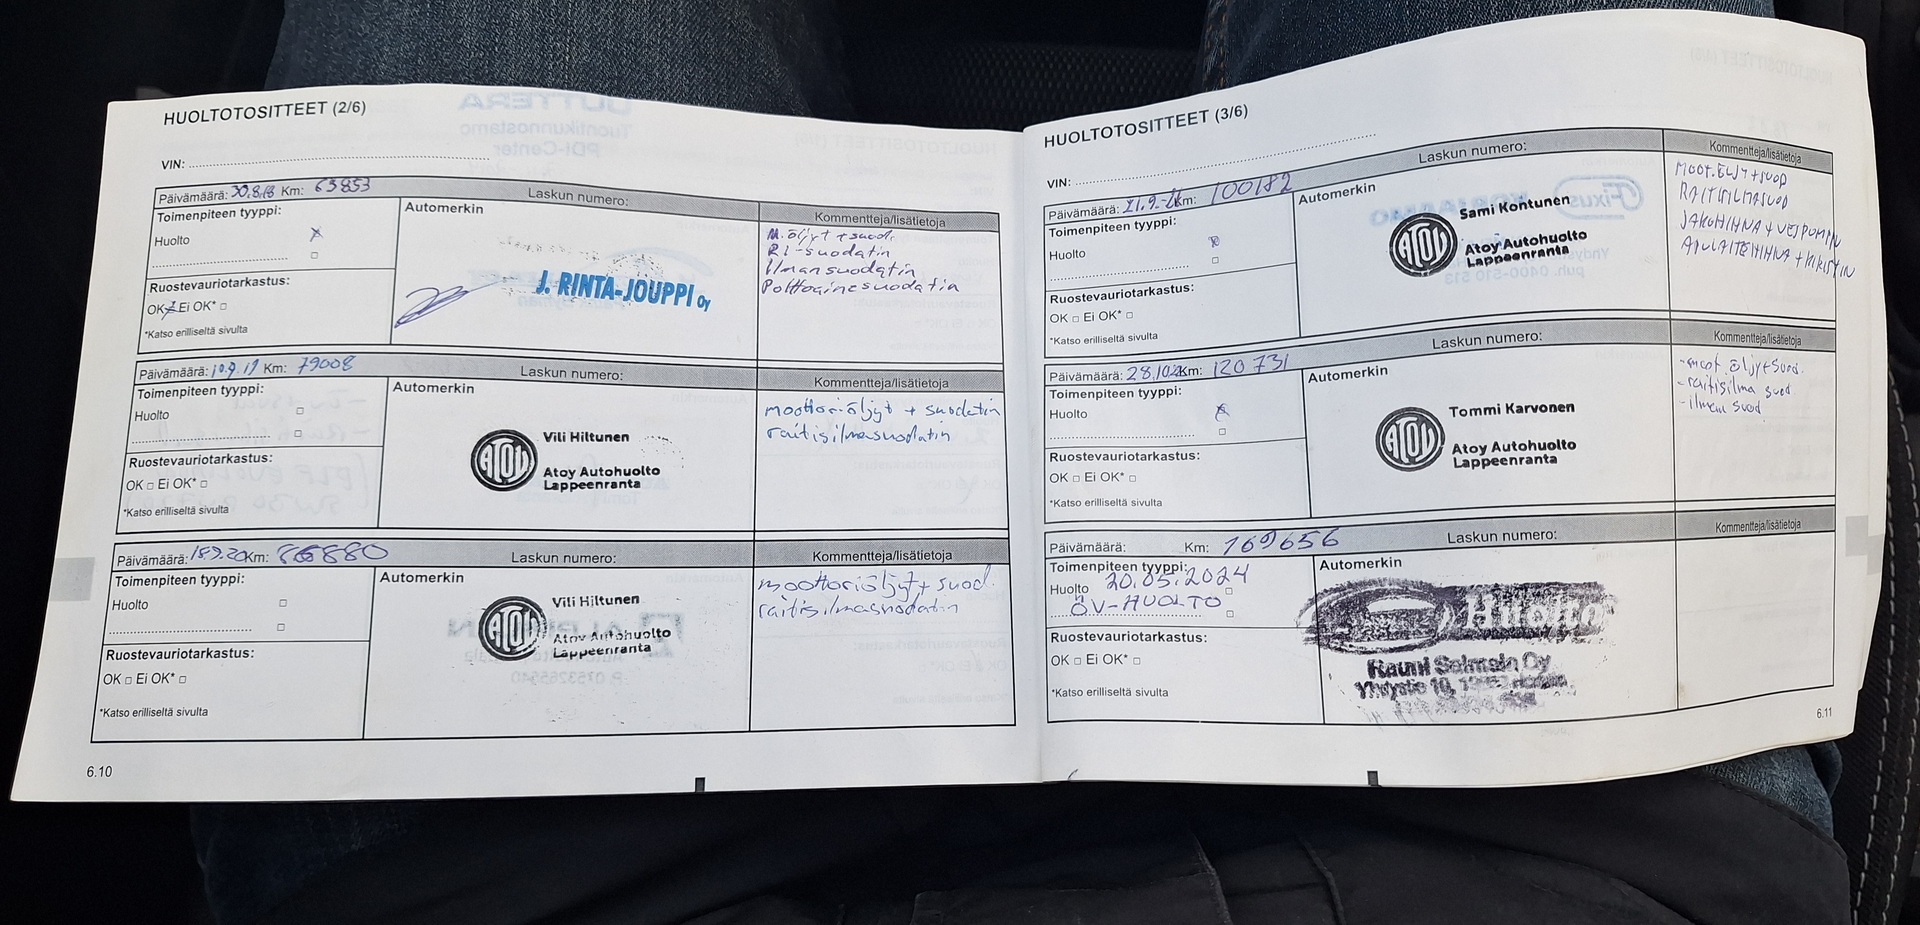 HUOLTOTOSITTEET (2/6)
VIN:
Päivämäärä: 30.8.18 Km: 63853 Laskun numero:
Toimenpiteen tyyppi:
Huolto
Ruostevauriotarkastus:
OK Ei OK*
*Katso erilliseltä sivulta
Automerkin
J. RINTA-JOUPPI OY
Kommentteja/lisätietoja
M.öljyt + suod.
RI-suodatin
Ilmansuodatin
Polttoainesuodatin
Päivämäärä: 10.9.19 Km: 79008 Laskun numero:
Toimenpiteen tyyppi:
Huolto
Ruostevauriotarkastus:
OK Ei OK*
*Katso erilliseltä sivulta
Automerkin
ATOY
Vili Hiltunen
Atoy Autohuolto
Lappeenranta
Kommentteja/lisätietoja
moottoriöljyt + suodatin
raitisilmasuodatin
Päivämäärä: 18.9.20 Km: 86880 Laskun numero:
Toimenpiteen tyyppi:
Huolto
Ruostevauriotarkastus:
OK Ei OK*
*Katso erilliseltä sivulta
Automerkin
ATOY
Vili Hiltunen
Atoy Autohuolto
Lappeenranta
Kommentteja/lisätietoja
moottoriöljyt + suod.
raitisilmasuodatin
6.10
HUOLTOTOSITTEET (3/6)
VIN:
Päivämäärä: 21.9.21 Km: 100182 Laskun numero:
Toimenpiteen tyyppi:
Huolto
Ruostevauriotarkastus:
OK Ei OK*
*Katso erilliseltä sivulta
Automerkin
ATOY
Sami Kontunen
Atoy Autohuolto
Lappeenranta
Kommentteja/lisätietoja
MOOT.ÖLJYT+SUOD
RAITISILMASUOD
JAKOHIHNA + VESIPUMPPU
APULAITEHIHNA + KIRISTIN
Päivämäärä: 28.10. Km: 120731 Laskun numero:
Toimenpiteen tyyppi:
Huolto
Ruostevauriotarkastus:
OK Ei OK*
*Katso erilliseltä sivulta
Automerkin
ATOY
Tommi Karvonen
Atoy Autohuolto
Lappeenranta
Kommentteja/lisätietoja
-moot.öljyt+suod.
-raitisilma suod.
-ilman suod
Päivämäärä: Km: 169656 Laskun numero:
Toimenpiteen tyyppi:
Huolto 20.05.2024
ÖV-HUOLTO
Ruostevauriotarkastus:
OK Ei OK*
*Katso erilliseltä sivulta
Automerkin
Huolto
Rauni Selmein Oy
Yhdystie 10,
Kommentteja/lisätietoja
6.11